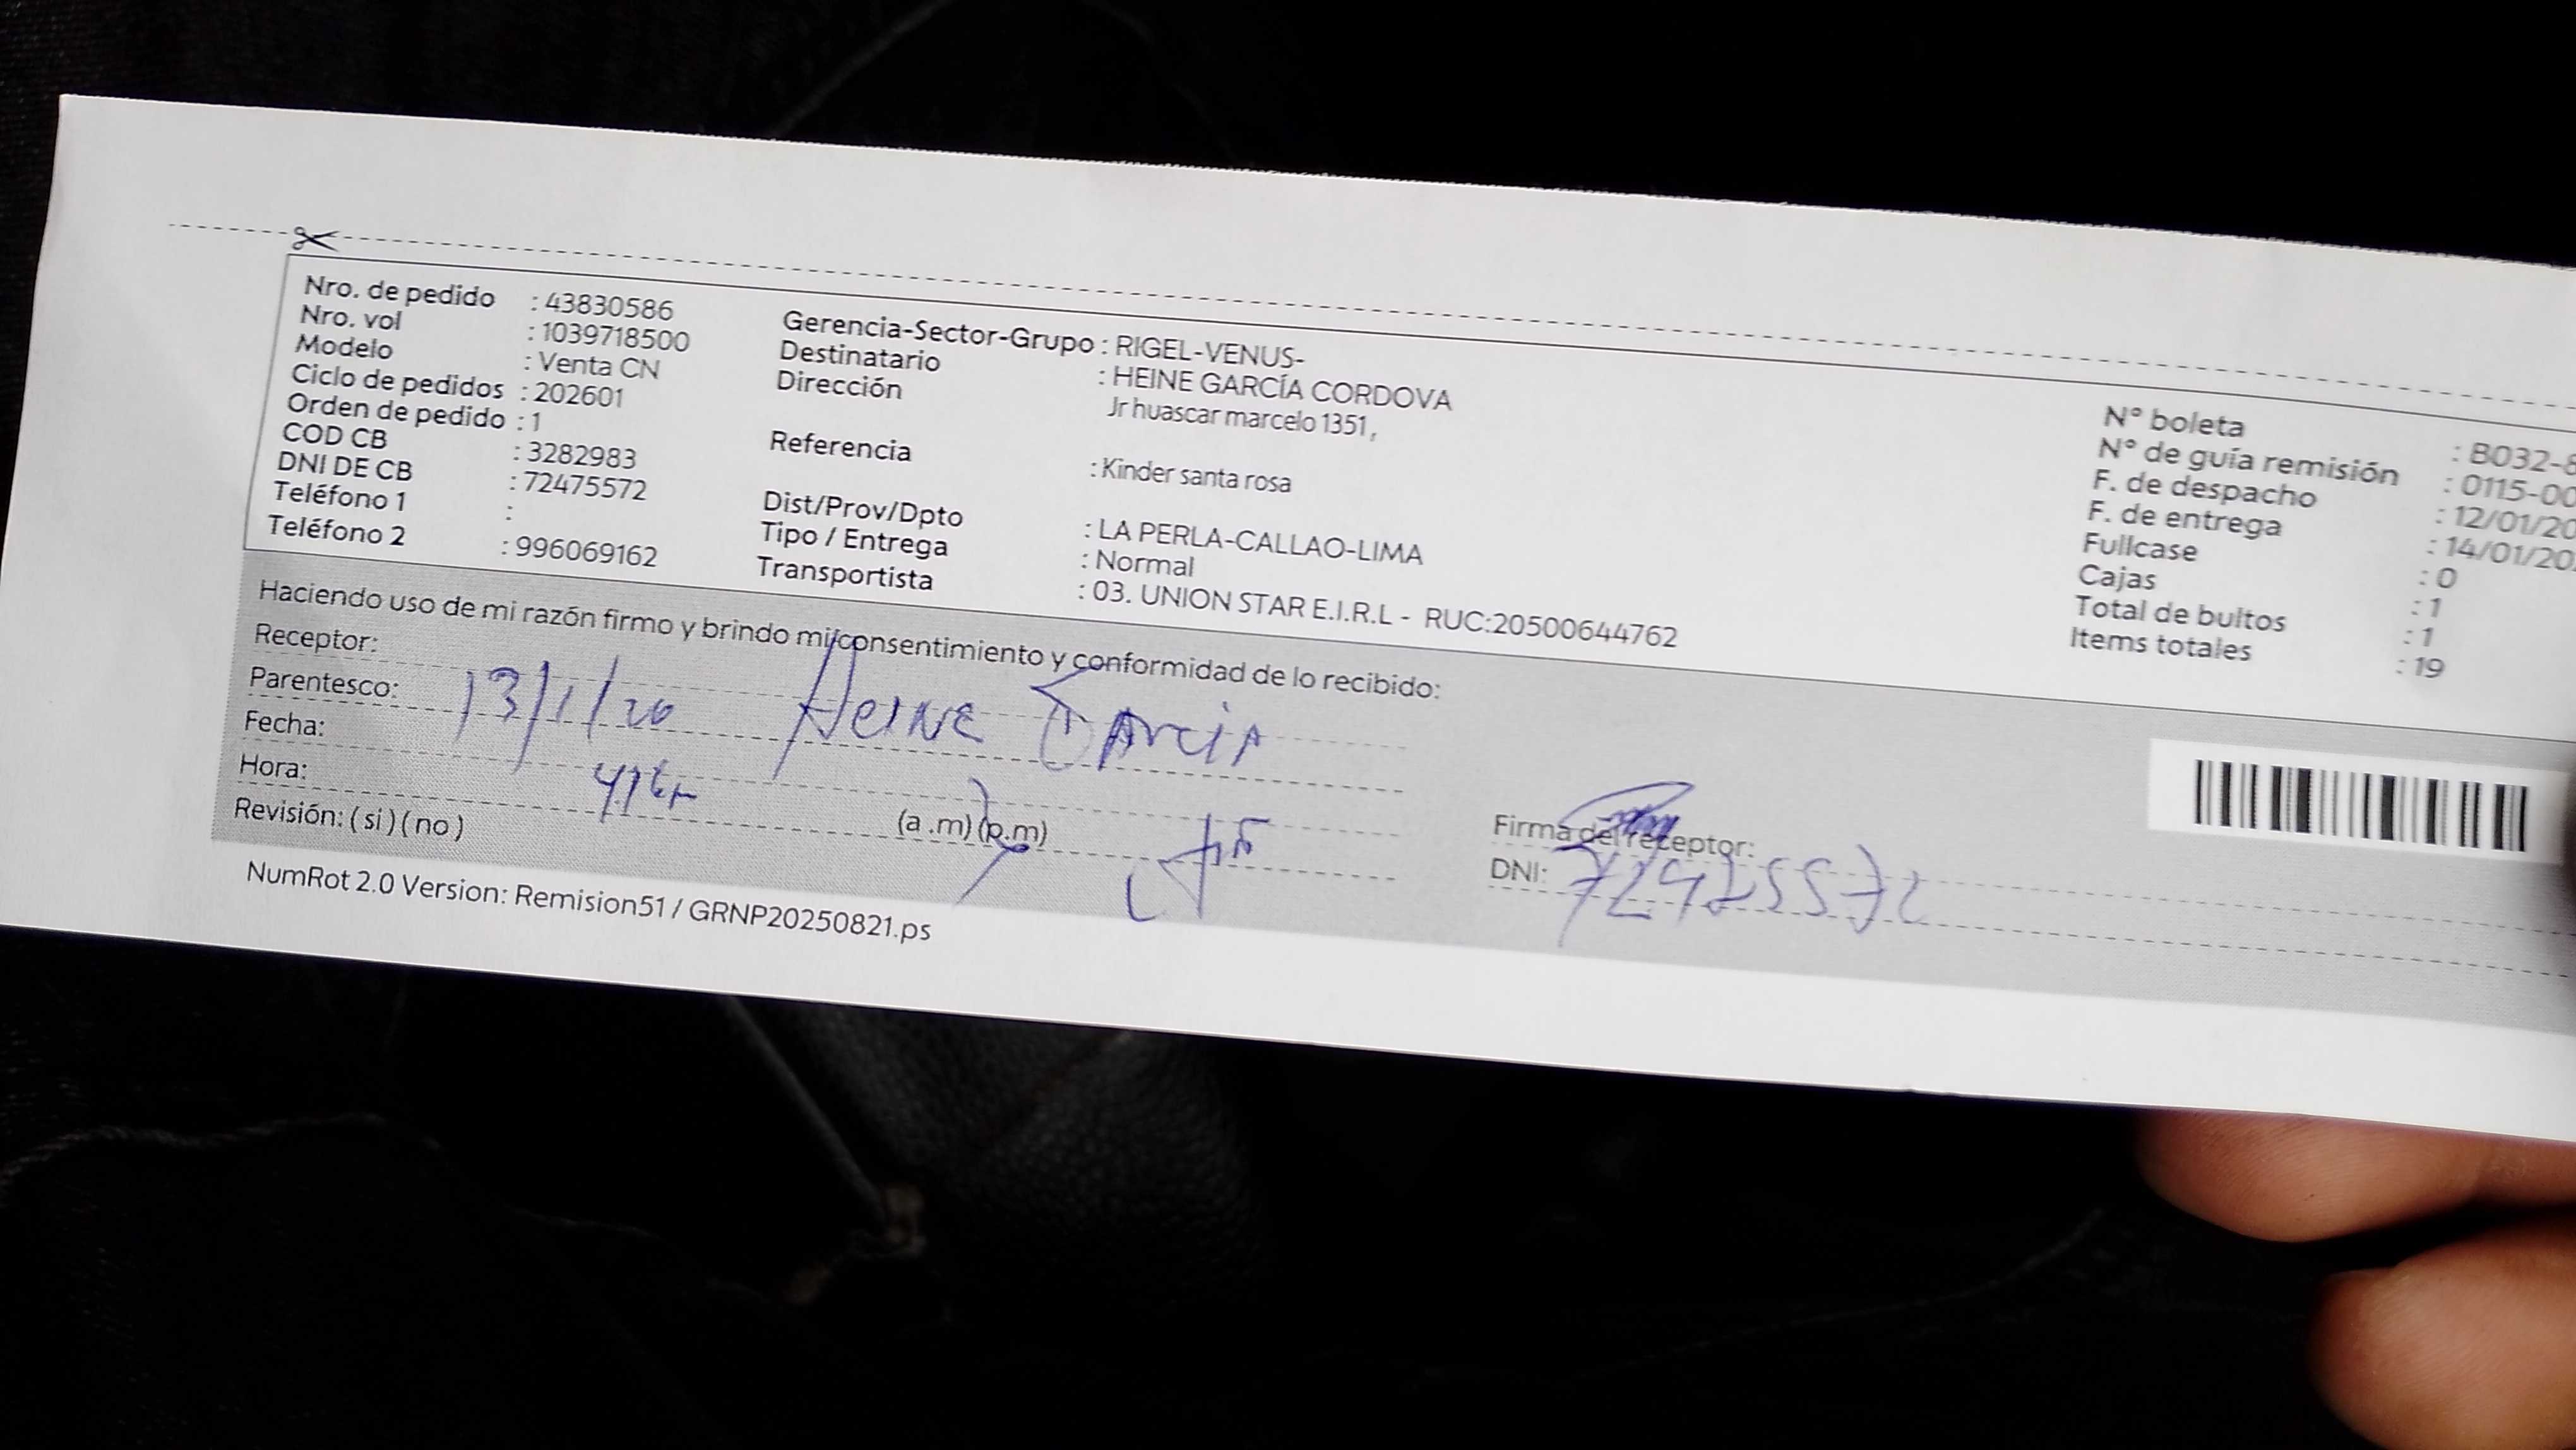 Nro. de pedido : 43830586
Nro. vol : 1039718500
Modelo : Venta CN
Ciclo de pedidos : 202601
Orden de pedido : 1
COD CB : 3282983
DNI DE CB : 72475572
Teléfono 1 :
Teléfono 2 : 996069162
Gerencia-Sector-Grupo : RIGEL-VENUS-
Destinatario : HEINE GARCÍA CORDOVA
Dirección Jr huascar marcelo 1351,
Referencia : Kinder santa rosa
Dist/Prov/Dpto : LA PERLA-CALLAO-LIMA
Tipo / Entrega : Normal
Transportista : 03. UNION STAR E.I.R.L - RUC:20500644762
N° boleta : B032-8
N° de guía remisión : 0115-00
F. de despacho : 12/01/20
F. de entrega : 14/01/20
Fullcase : 0
Cajas : 1
Total de bultos : 1
Items totales : 19
Haciendo uso de mi razón firmo y brindo mi consentimiento y conformidad de lo recibido:
Receptor:
Parentesco: 13/1/20 HEINE GARCIA
Fecha:
Hora: (a .m) (p.m)
Revisión: ( si ) ( no )
Firma del receptor:
DNI: 72475572
NumRot 2.0 Version: Remision51 / GRNP20250821.ps